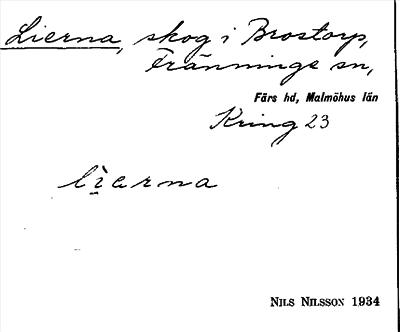 Lierna, skog i Brostorp,
Fränninge sn,
Färs hd, Malmöhus län
Kring 23
lìarna
NILS NILSSON 1934